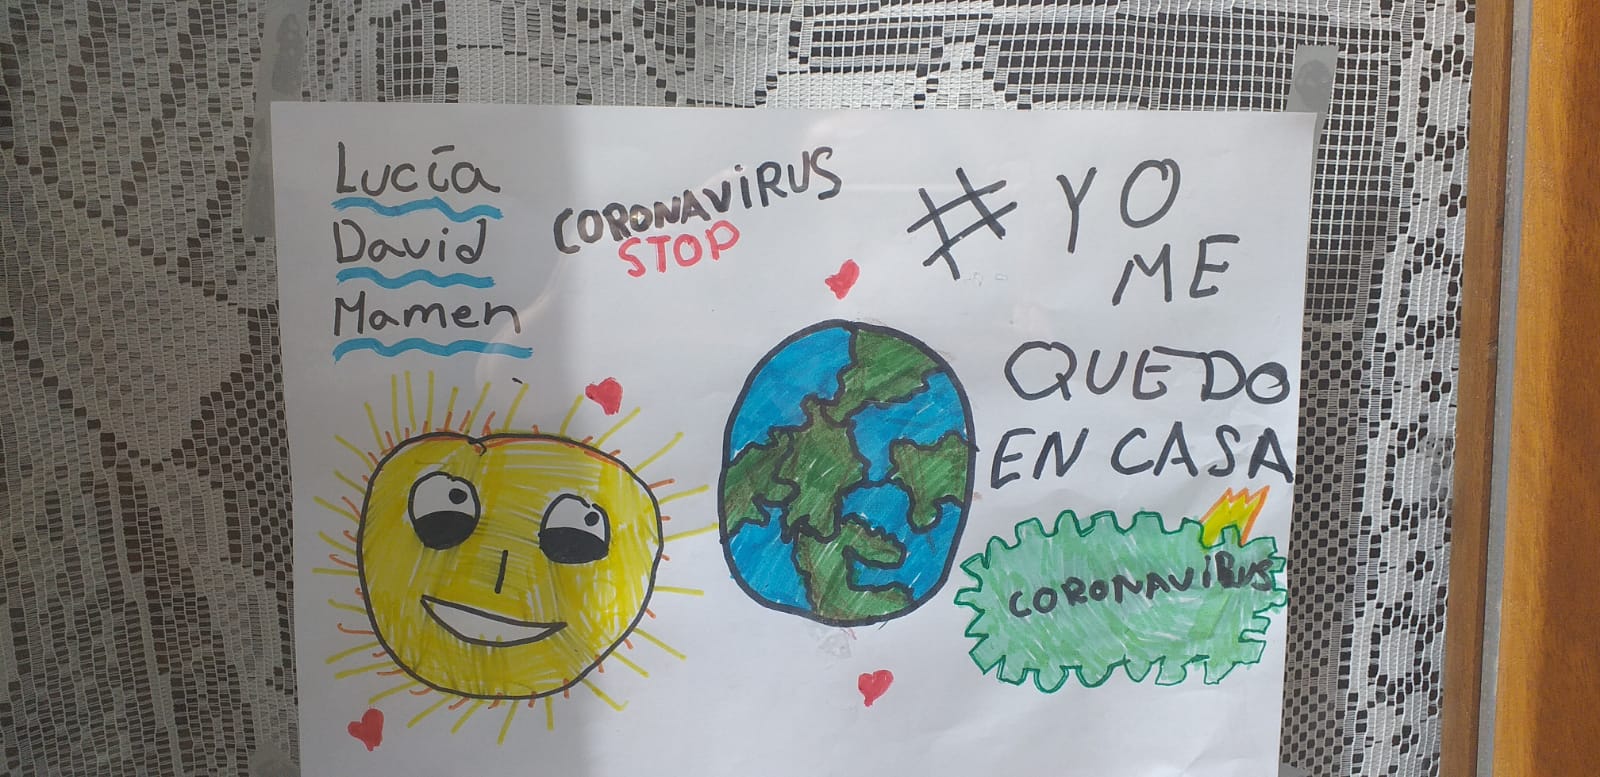 Lucía
David
Mamen
CORONAVIRUS
STOP
# YO
ME
QUEDO
EN CASA
CORONAVIRUS